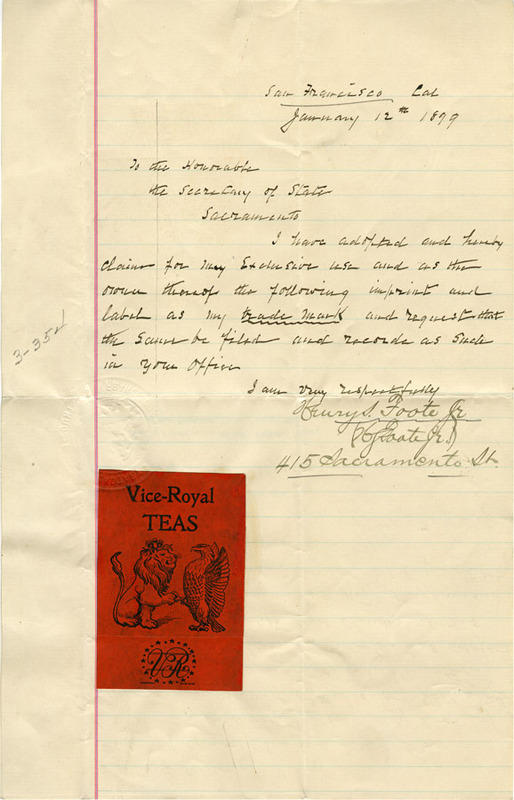 San Francisco Cal
January 12th 1899
To the Honorable
the Secretary of State
Sacramento
I have adopted and hereby
claim for my Exclusive use and as the
owner thereof the following imprint and
label as my trade mark and request that
the same be filed and records as such
in your Office
I am very respectfully
Henry S. Foote Jr
(H Foote Jr.)
415 Sacramento St
3-354
Vice-Royal
TEAS
VR